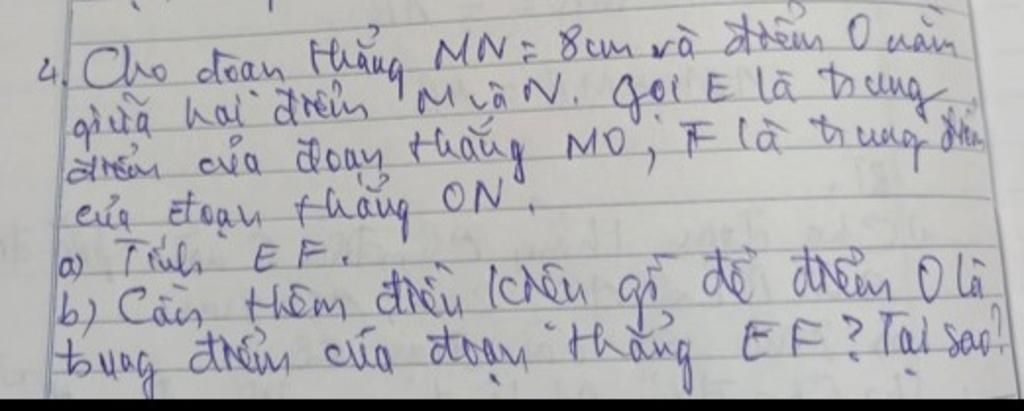 4. Cho đoạn thẳng MN = 8cm và điểm O nằm
giữa hai điểm M và N. Gọi E là trung
điểm của đoạn thẳng MO, F là trung điểm
của đoạn thẳng ON.
a) Tính EF.
b) Cần thêm điều kiện gì để điểm O là
trung điểm của đoạn thẳng EF? Tại sao?